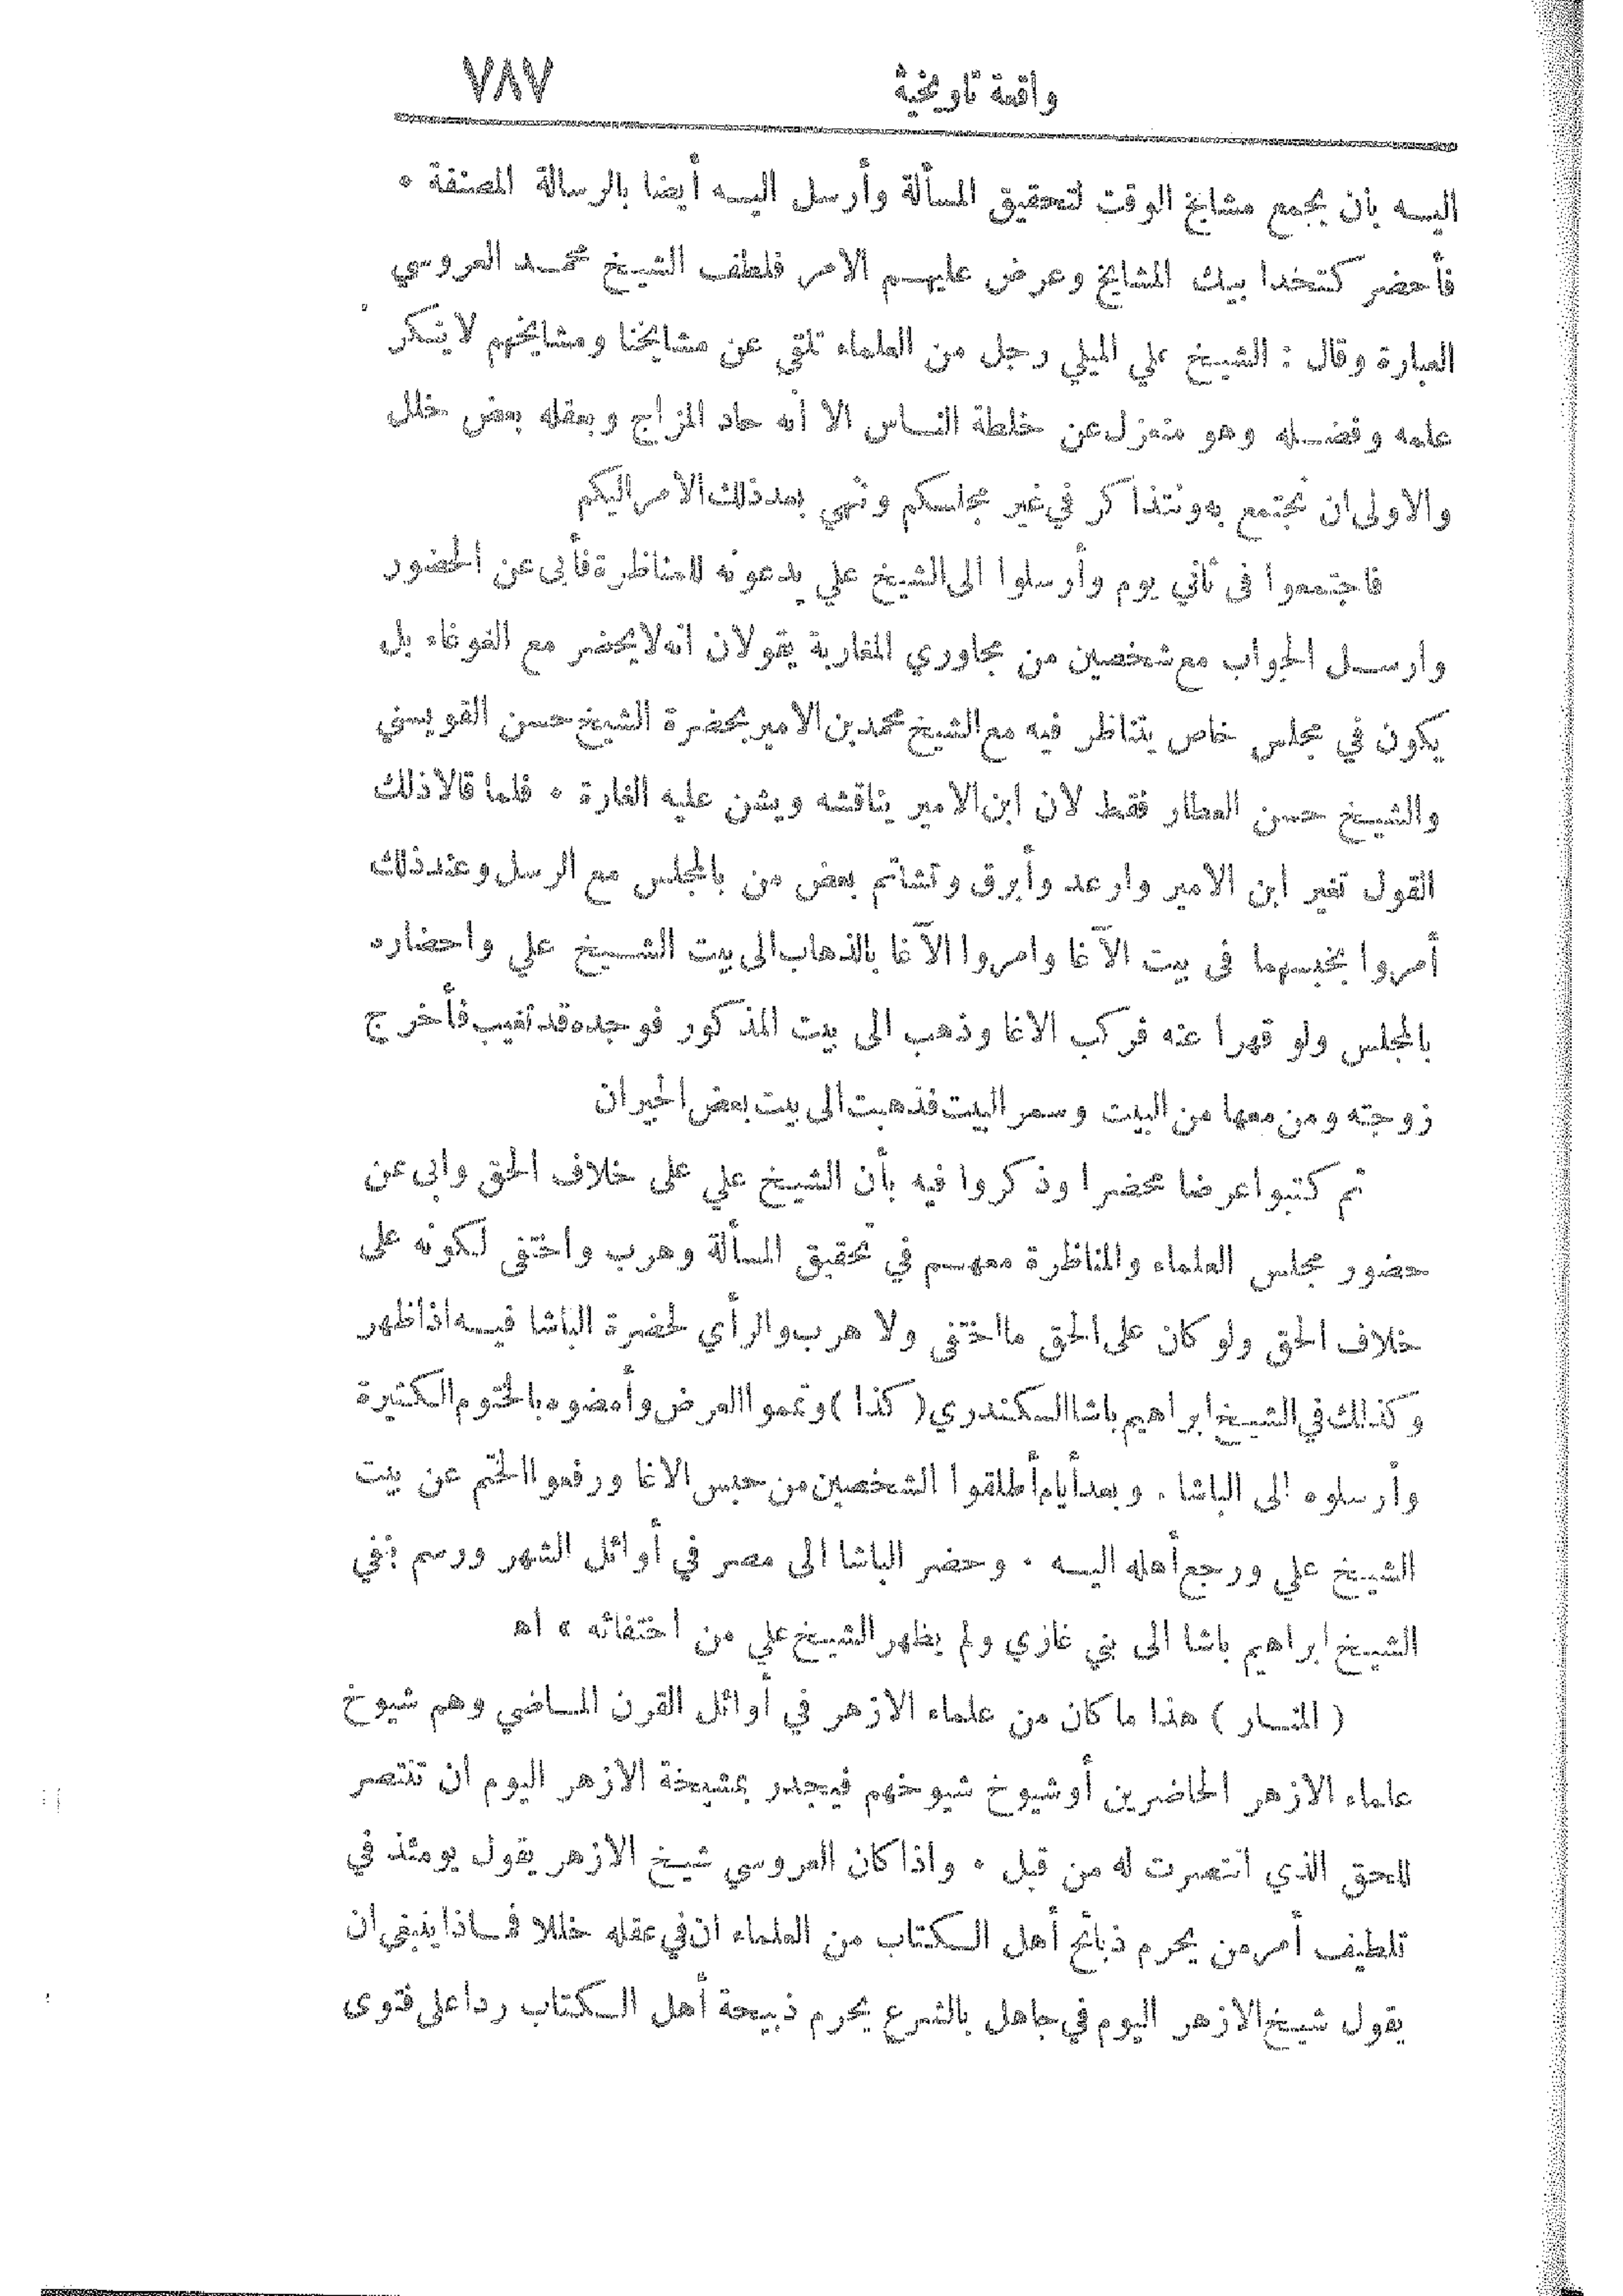 واقعة تاريخية ٧٨٧
اليه بان يجمع مشايخ الوقت لتحقيق المسألة وأرسل اليه أيضا بالرسالة المصنفة .
فأحضر كتخدا بيك المشايخ وعرض عليهم الامر فلطف الشيخ محمد العروسي
العبارة وقال : الشيخ علي الميلي رجل من العلماء تلقى عن مشايخنا ومشايخهم لا ينكر
علمه وفضله وهو منعزل عن خلطة الناس الا أنه حاد المزاج وبعقله بعض خلل
والاولى ان نجتمع به ونتذاكر في غير مجلسكم وننهي بعد ذلك الامر اليكم
فاجتمعوا في ثاني يوم وأرسلوا الى الشيخ علي يدعونه للمناظرة فأبى عن الحضور
وارسل الجواب مع شخصين من مجاوري المغاربة يقولان انه لا يحضر مع الغوغاء بل
يكون في مجلس خاص يتناظر فيه مع الشيخ محمد بن الامير بحضرة الشيخ حسن القويسني
والشيخ حسن العطار فقط لان ابن الامير يناقشه ويشن عليه الغارة . فلما قالا ذلك
القول تغير ابن الامير وارعد وأبرق وتشاتم بعض من بالمجلس مع الرسل وعند ذلك
أمروا بحبسهما في بيت الآغا وامروا الآغا بالذهاب الى بيت الشيخ علي واحضاره
بالمجلس ولو قهرا عنه فركب الاغا وذهب الى بيت المذكور فوجده قد تغيب فأخرج
زوجته ومن معها من البيت وسمر البيت فذهبت الى بيت بعض الجيران
ثم كتبوا عرضا محضرا وذكروا فيه بأن الشيخ علي على خلاف الحق وابى عن
حضور مجلس العلماء والمناظرة معهم في تحقيق المسألة وهرب واختفى لكونه على
خلاف الحق ولو كان على الحق ما اختفى ولا هرب والرأي لحضرة الباشا فيه اذا ظهر
وكذلك في الشيخ ابراهيم باشا السكندري ( كذا ) وتمموا العرض وأمضوه بالختوم الكثيرة
وأرسلوه الى الباشا . وبعد أيام أطلقوا الشخصين من حبس الاغا ورفعوا الختم عن بيت
الشيخ علي ورجع أهله اليه . وحضر الباشا الى مصر في أوائل الشهر ورسم بنفي
الشيخ ابراهيم باشا الى بني غازي ولم يظهر الشيخ علي من اختفائه » اه
( المنار ) هذا ما كان من علماء الازهر في أوائل القرن الماضي وهم شيوخ
علماء الازهر الحاضرين أو شيوخ شيوخهم فيجدر بمشيخة الازهر اليوم ان تنتصر
للحق الذي انتصرت له من قبل . واذا كان العروسي شيخ الازهر يقول يومئذ في
تلطيف أمر من يحرم ذبائح أهل الكتاب من العلماء ان في عقله خللا فماذا ينبغي ان
يقول شيخ الازهر اليوم في جاهل بالشرع يحرم ذبيحة أهل الكتاب ردا على فتوى